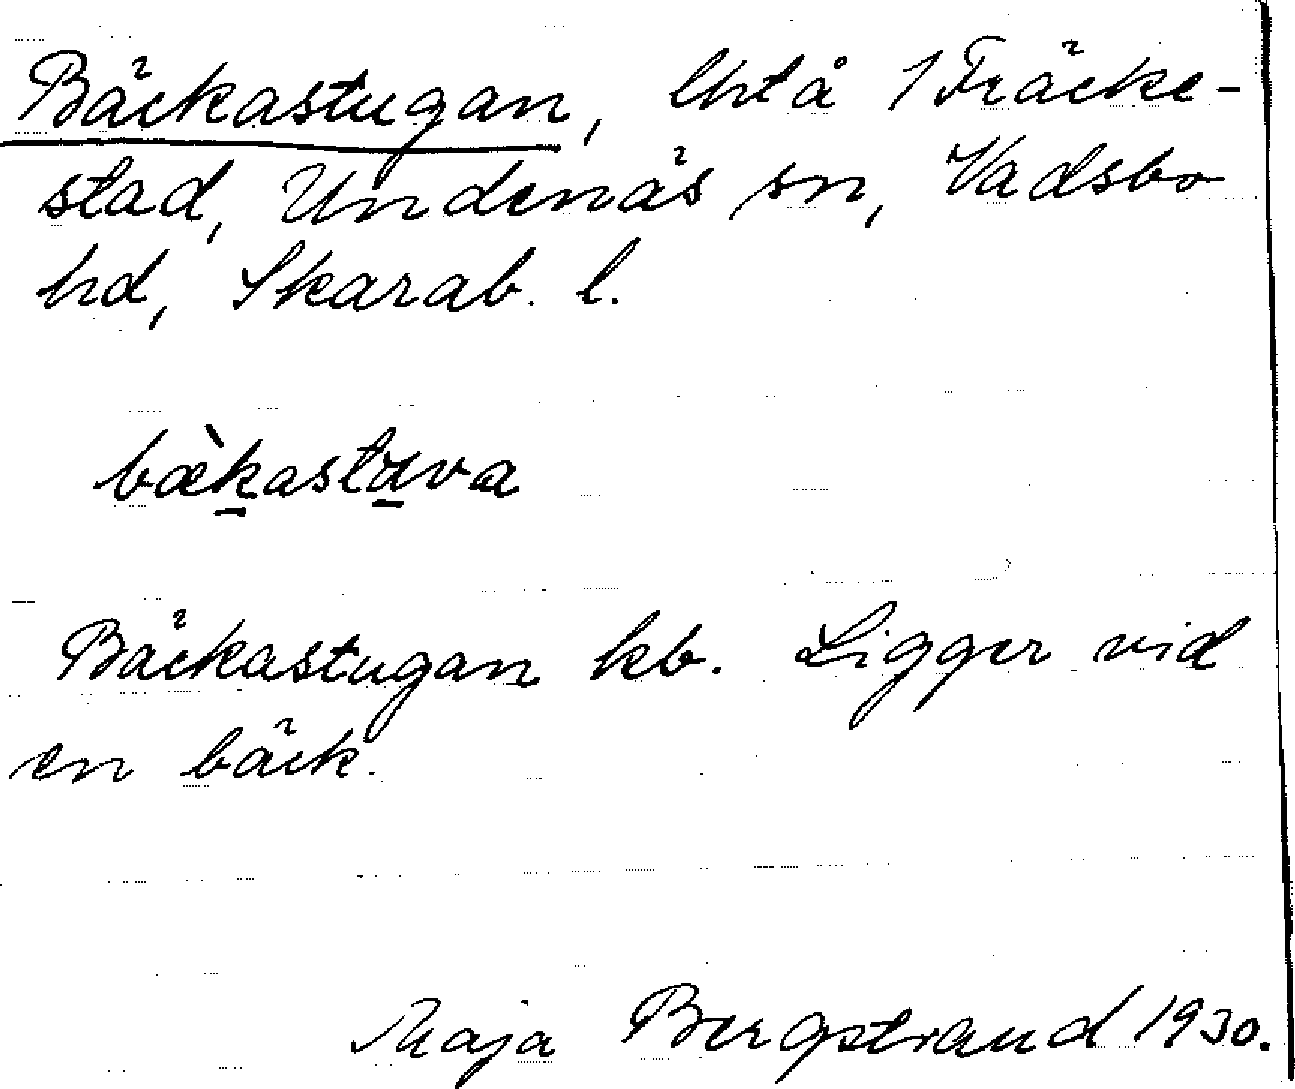 Bäckastugan, lht å 1 Fräcke-
stad, Undenäs sn, Vadsbo
hd, Skarab. l.
bæ̀kastava
Bäckastugan kb. Ligger vid
en bäck.
Maja Bergstrand 1930.